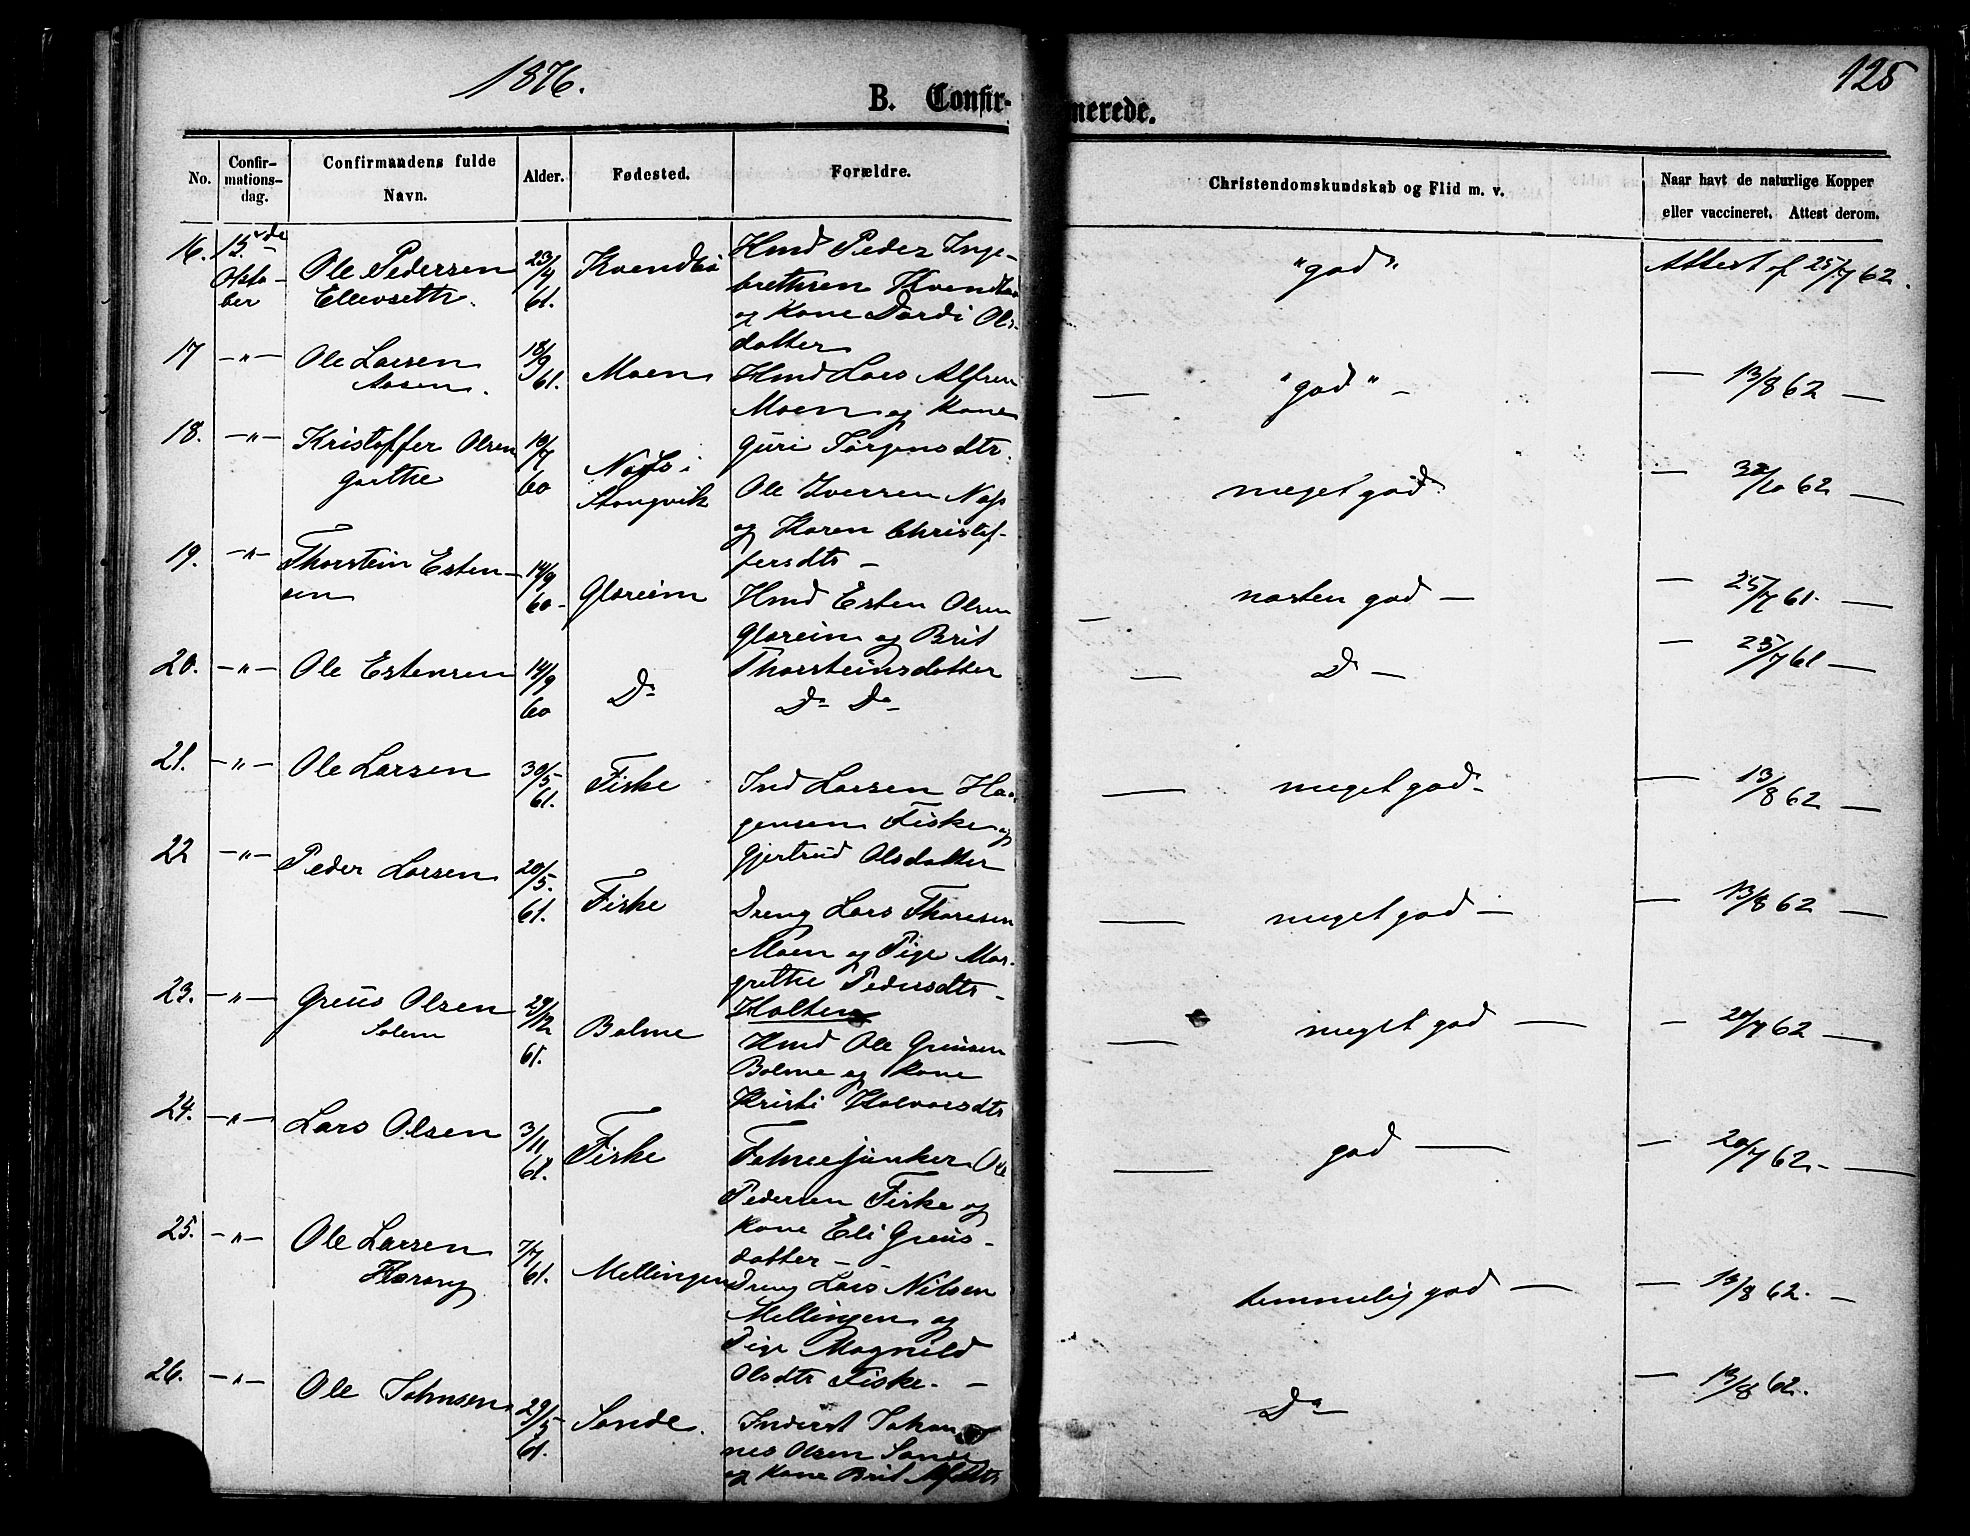 1876.
125
B. Confir-
merede.
No.
Confir-
mations-
dag.
Confirmandens fulde
Navn.
Alder.
Fødested.
Forældre.
Christendomskundskab og Flid m. v.
Naar havt de naturlige Kopper
eller vaccineret. Attest derom.
16. 15de Octo-ber Ole Pedersen Ellevseth. 23/4 61. Hmd Peder Inge-
brethsen
og Kone Dordi Ols-
datter
"god" Attest af 25/7 62.
17 —"— Ole Larsen Aasen. 18/9 61. Moen Hmd Lars Alfsen
Moen og Kone
Guri Jørgensdtr.
— "god" — — 13/8 62 —
18. —"— Kristoffer Olsen 19/7 60 i Stangvik Ole Iversen
og Karen Christof-
fersdtr —
meget god — 62 —
19. —"— Thorstein Esten-
sen 14/9 60 Gloreim Hmd Esten Olsen
Gloreim og Brit
Thorsteinsdatter
— næsten god — — 25/7 61. —
20. —"— Ole Estensen 14/9 60 Do Do Do
— Do — — 25/7 61 —
21. —"— Ole Larsen 30/5 61. Fiske Ind Larsen Haa-
gensen Fiske og
Gjertrud Olsdatter
— meget god — — 13/8 62 —
22 —"— Peder Larsen 20/5. 61. Fiske Dreng Lars Thoresen
Moen og Pige Mar-
grethe Pedersdtr —
Holten
— meget god — — 13/8 62 —
23. —"— Greus Olsen Solem 29/12 61. Bolme Hmd Ole Greusen
Bolme og Kone
Kristi Halvorsdtr
— meget god — — 20/7 62 —
24. —"— Lars Olsen 3/11 61. Fiske Fohnejunker Ole
Pedersen Fiske og
Kone Eli Greus-
datter —
— god — — 20/7 62. —
25. —"— Ole Larsen Harang 7/7 61. Mellingen Dreng Lars Nilsen
Mellingen og
Pige Magnild
Olsdtr Fiske. —
temmelig god — — 13/8 62. —
26. —"— Ole Johnsen 29/5 61. Sande. Inderst Johan-
nes Olsen Sande
og Kone Brit
Do — 13/8 62.